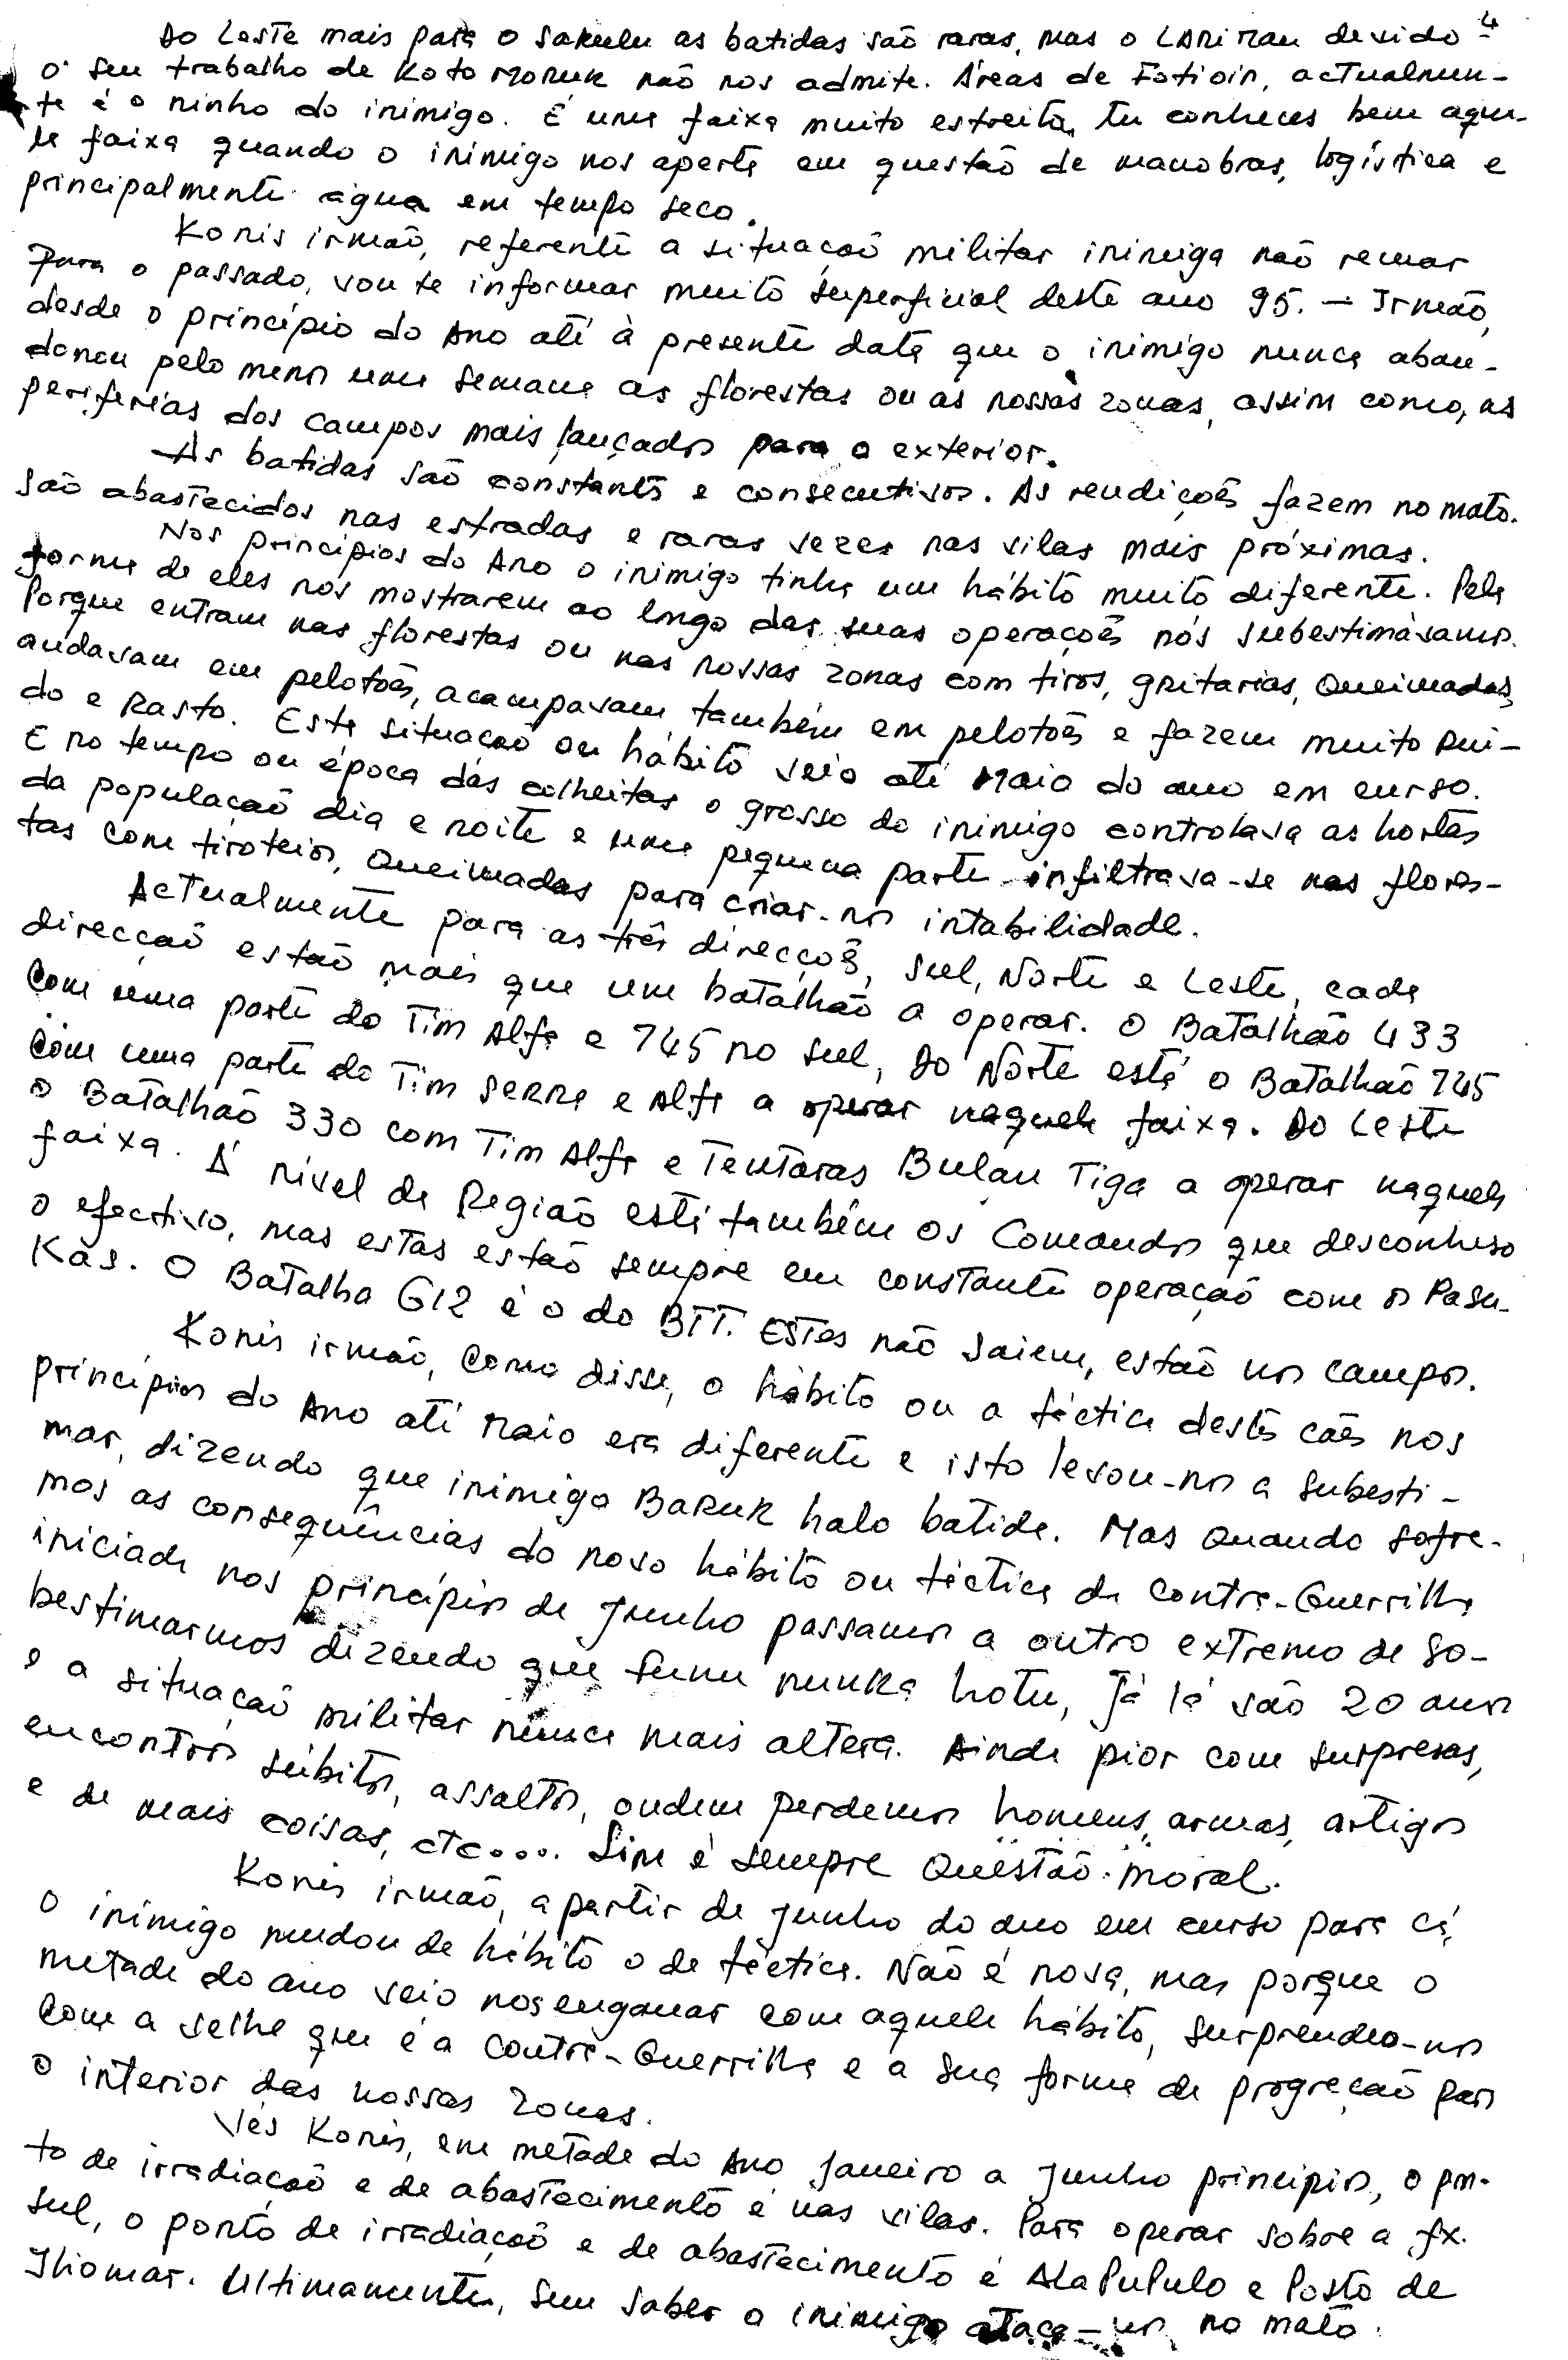 4
Ao Leste mais para o Sakulu as batidas são raras, mas o LARIMAU devido
o seu trabalho de Koto MORUK não nos admite. Áreas de Fotioin, actualmen-
te é o ninho do inimigo. É uma faixa muito estreita, tu conheces bem aque-
le faixa quando o inimigo nos aperta em questão de manobras, logística e
principalmente agua em tempo seco.
Konis irmão, referente a situação militar inimiga não remar
para o passado, vou te informar muito superficial deste ano 95. — Irmão,
desde o princípio do Ano até à presente data que o inimigo nunca aban-
donou pelo menos uma semana as florestas ou as nossas zonas, assim como, as
periferias dos campos mais lançados para o exterior.
As batidas são constantes e consecutivos. As rendições fazem no mato.
São abastecidos nas estradas e raras vezes nas vilas mais próximas.
Nos princípios do Ano o inimigo tinha um hábito muito diferente. Pela
forma de eles nos mostrarem ao longo das suas operações nós subestimávamos.
Porque entram nas florestas ou nas nossas zonas com tiros, gritarias, queimadas,
andavam em pelotões, acampavam também em pelotões e fazem muito Rui-
do e Rasto. Esta situação ou hábito veio até Maio do ano em curso.
E no tempo ou época das colheitas o grosso do inimigo controlava as hortas
da população dia e noite e uma pequena parte infiltrava-se nas flores-
tas com tiroteios, queimadas para criar-nos intabilidade.
Actualmente para as três direcções, Sul, Norte e Leste, cada
direcção estão mais que um batalhão a operar. O Batalhão 433
com uma parte do Tim Alfa e 745 no Sul, Ao Norte está o Batalhão 745
com uma parte do Tim SERRA e Alfa a operar naquela faixa. Ao Leste
o Batalhão 330 com Tim Alfa e Tentaras Bulan Tiga a operar naquela
faixa. Á nível de Região está também os Comandos que desconheso
o efectivo, mas estas estão sempre em constante operação com os Pasu-
Kas. O Batalha 612 é o do BTT. Estes não saiem, estão nos campos.
Konis irmão, como disse, o hábito ou a táctica destes cães nos
princípios do Ano até Maio era diferente e isto levou-nos a subesti-
mar, dizendo que inimigo BARUK halo batida. Mas quando sofre-
mos as consequências do novo hábito ou táctica da contra-Guerrilha
iniciada nos princípios de Junho passamos a outro extremo de so-
bestimarmos dizendo que funu nunka hotu, Já lá vão 20 anos
e a situação militar nunca mais altera. Ainda pior com surpresas,
encontros súbitos, assaltos, ondem perdemos homens, armas, artigos
e de mais coisas, etc.... Sim é sempre questão moral.
Konis irmão, a partir de Junho do ano em curso para cá,
o inimigo mudou de hábito o de táctica. Não é nova, mas porque o
metade do ano veio nos enganar com aquele hábito, surprendeo-nos
com a velha que é a contra-Guerrilha e a sua forma de progreção para
o interior das nossas zonas.
Vês Konis, em metade do Ano Janeiro a Junho princípios, o pon-
to de irradiação e de abastecimento é nas vilas. Para operar sobre a fx.
Sul, o ponto de irradiação e de abastecimento é AlaPuPulo e Posto de
Iliomar. Ultimamente, sem saber o inimigo ataca-nos no mato.